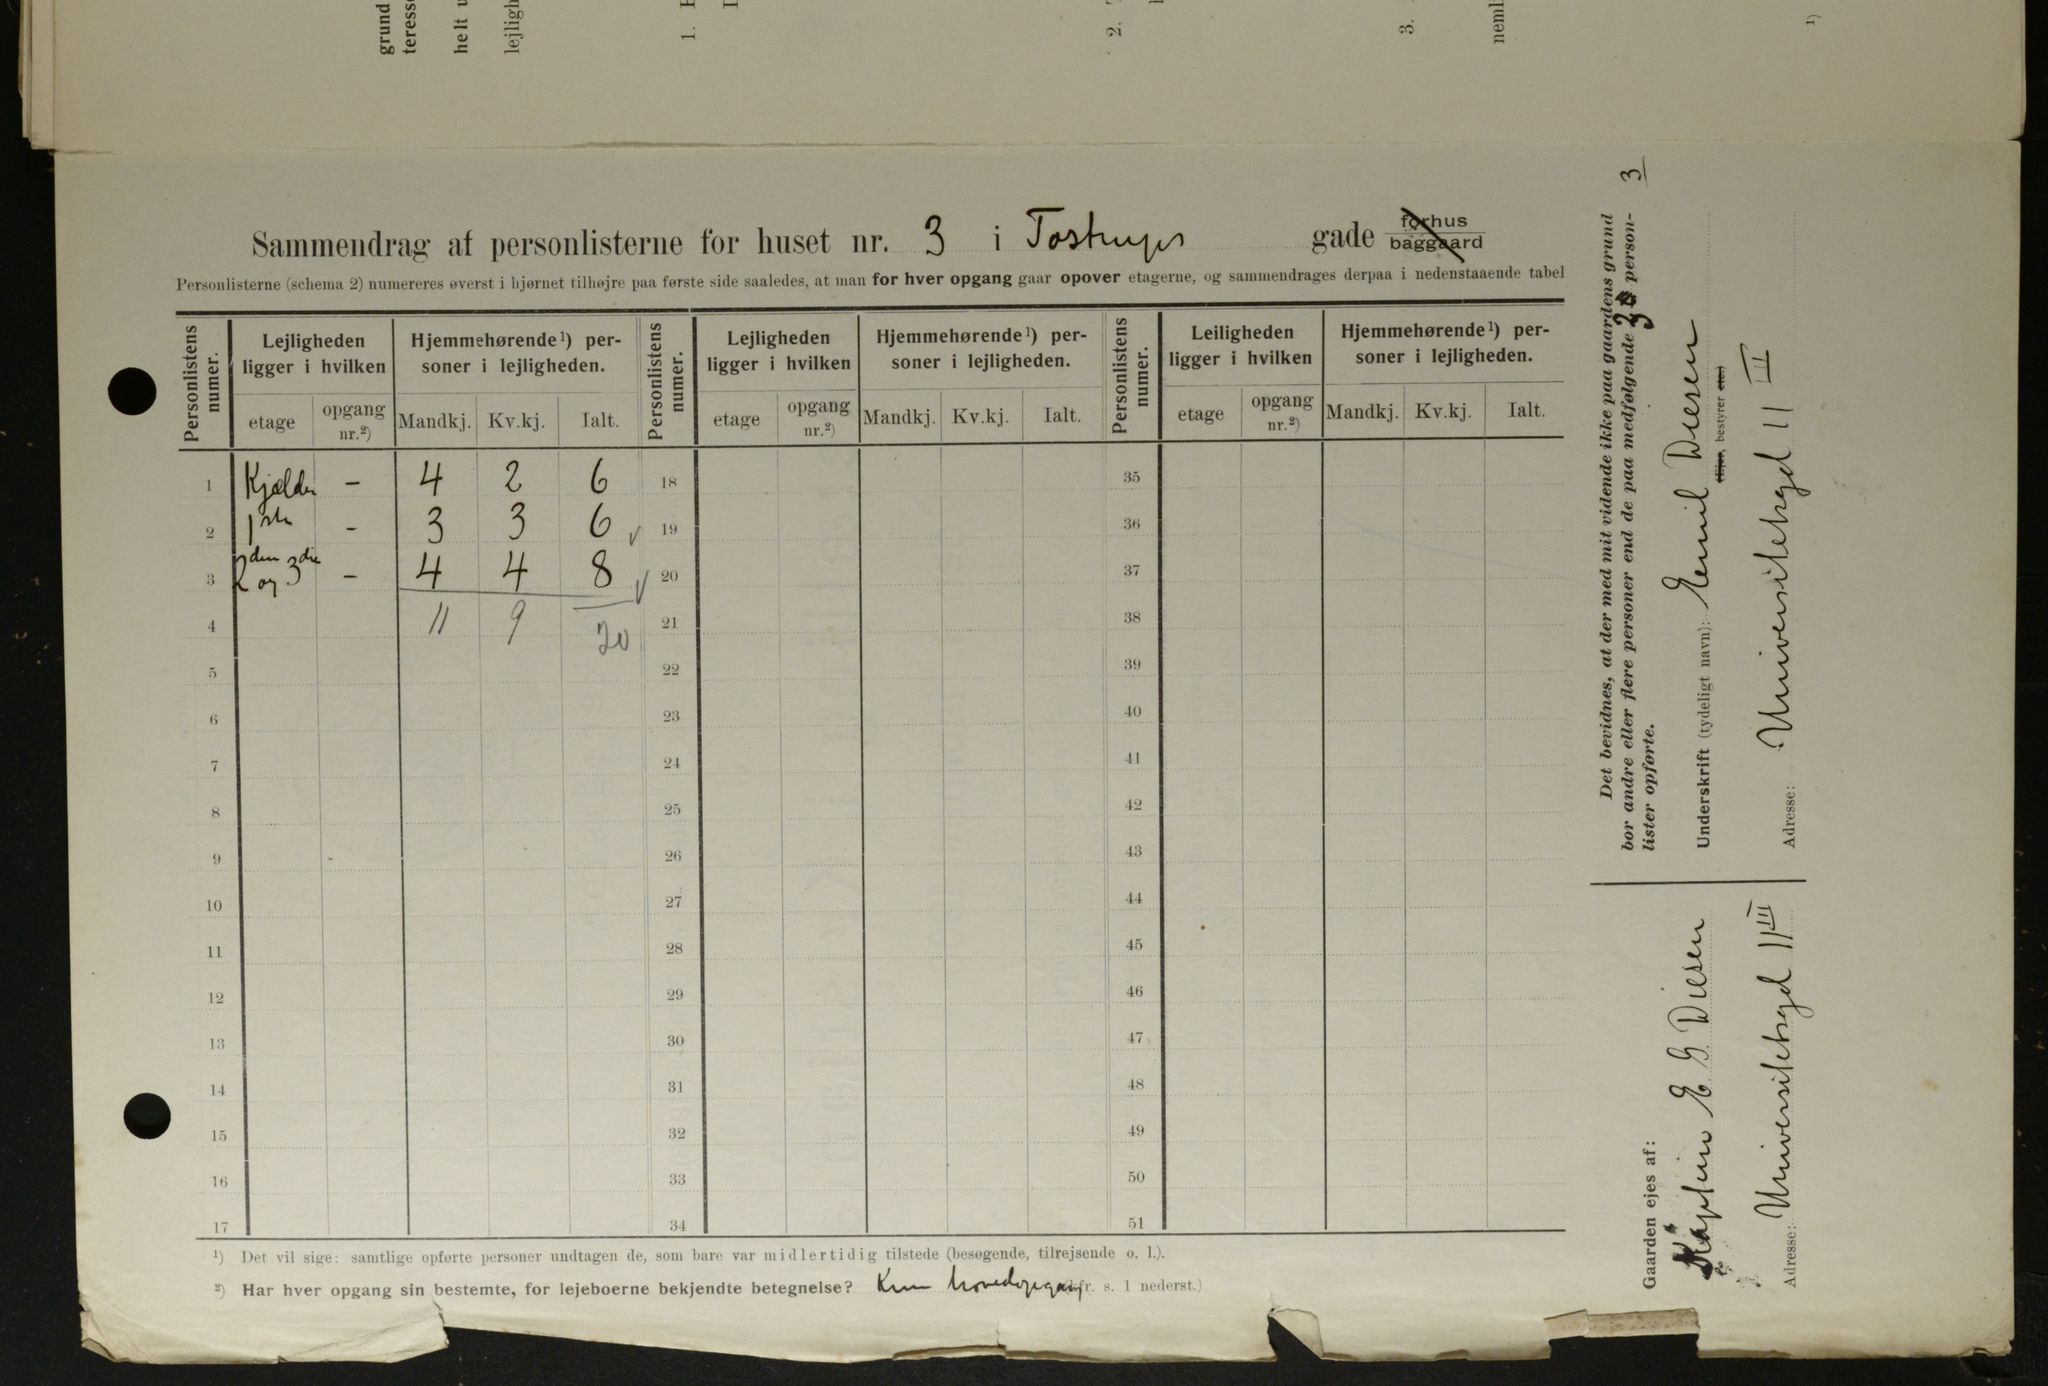 grund
teresse
helt u
lejligh
1.
2.
3.
neml
1)
3
Sammendrag af personlisterne for huset nr. 3 i Tostrups gade forhus baggaard
Personlisterne (schema 2) numereres øverst i hjørnet tilhøjre paa første side saaledes, at man for hver opgang gaar opover etagerne, og sammendrages derpaa i nedenstaaende tabel
Personlistens numer. Lejligheden ligger i hvilken Hjemmehørende¹) personer i lejligheden. Personlistens numer. Lejligheden ligger i hvilken Hjemmehørende¹) personer i lejligheden. Personlistens numer. Leiligheden ligger i hvilken Hjemmehørende¹) personer i lejligheden.
etage opgang nr.²) Mandkj. Kv.kj. Ialt. etage opgang nr.²) Mandkj. Kv.kj. Ialt. etage opgang nr.²) Mandkj. Kv.kj. Ialt.
1 Kjælder – 4 2 6 18 35
2 1ste – 3 3 6 19 36
3 2den og 3die – 4 4 8 20 37
4 11 9 20 21 38
5 22 39
6 23 40
7 24 41
8 25 42
9 26 43
10 27 44
11 28 45
12 29 46
13 30 47
14 31 48
15 32 49
16 33 50
17 34 51
¹) Det vil sige: samtlige opførte personer undtagen de, som bare var midlertidig tilstede (besøgende, tilrejsende o. l.).
²) Har hver opgang sin bestemte, for lejeboerne bekjendte betegnelse? Kun hovedopgang (jfr. s. 1 nederst.)
Det bevidnes, at der med mit vidende ikke paa gaardens grund
bor andre eller flere personer end de paa medfølgende 3 personlister opførte.
Underskrift (tydeligt navn): Emil Diesen
(Ejer, bestyrer etc.)
Adresse: Universitetsgd 11 III
Gaarden ejes af:
Kaptein E G Diesen
Adresse: Universitetsgd 11 III